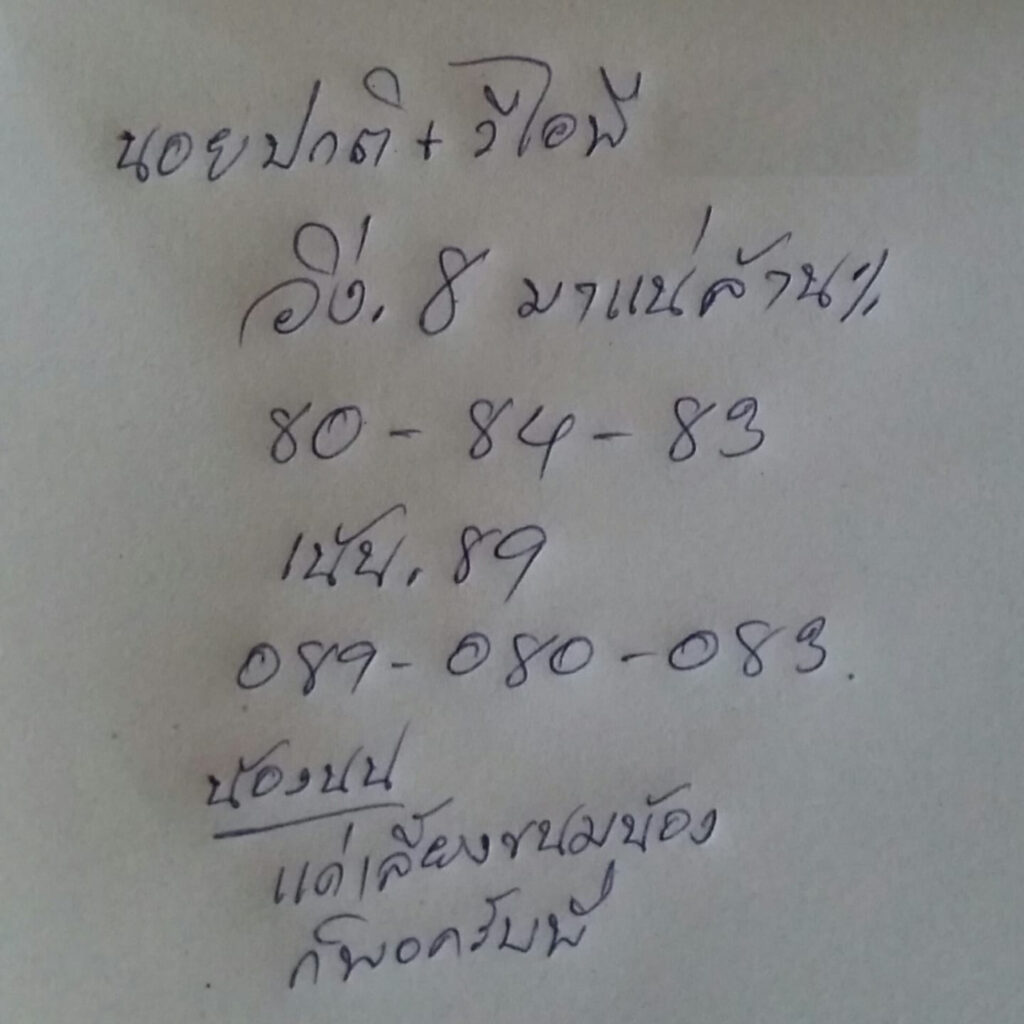 นอยปกติ + วีไอพี
วิ่ง. 8 มาแน่ล้าน%
80 - 84 - 83
เน้น. 89
089 - 080 - 083.
น้องนน
แค่เลี้ยงขนมน้อง
ก็พอครับพี่